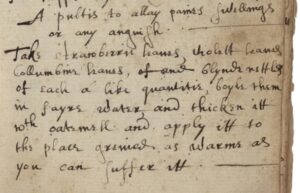 A pultis to allay paines swellings
or any anguish
Take strawberrie leaves, violett leaves
Collumbine leaves, of and blynde nettles
of each a like quantitie, boyle them
in fayre water and thicken itt
wth oatemell and apply itt to
the place greived as warme as
you can suffer itt